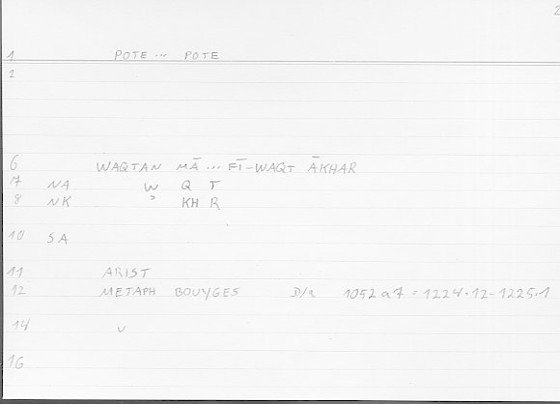 2
1 POTE ... POTE
2
6 WAQTAN MĀ ... FĪ-WAQT ĀKHAR
7 NA W Q T
8 NK ɔ KH R
10 SA
11 ARIST
12 METAPH BOUYGES D/a 1052 a 7 = 1224.12-1225.1
14 v
16